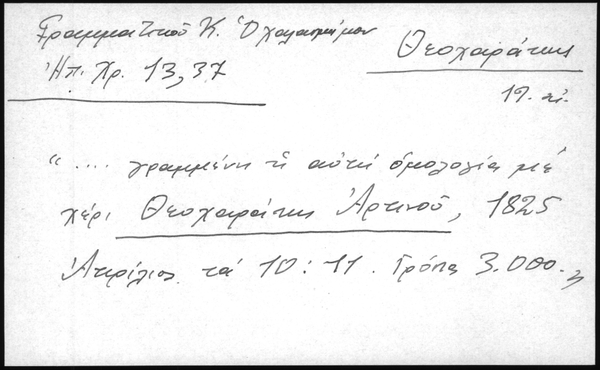 Γραμματικού Κ.
Ἠπ. Χρ. 13, 37
Θεοχαράκης
19. αἰ.
“ .... γραμμένη ἡ αὐτή ὁμολογία μέ
χέρι Θεοχαράκης Ἀρτινοῦ, 1825
Ἀπρίλιος τά 10 : 11. Γρόσια 3.000.